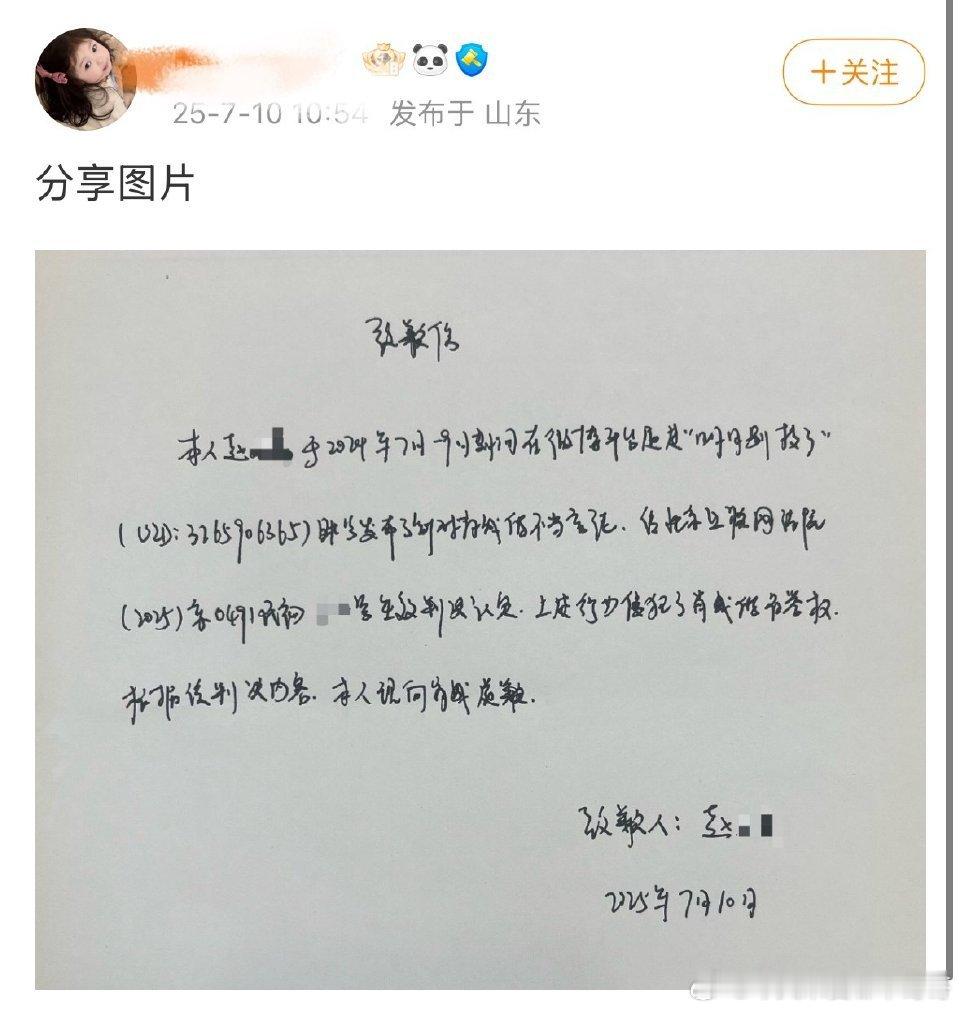 25-7-10 10:54 发布于 山东
+关注
分享图片
致歉信
本人赵 于2024年7月-9月期间在微博平台通过"明月别枝了"
(UID:3265906365)账号发布了针对肖战的不当言论.经北京互联网法院
(2025)京0491民初 号生效判决认定.上述行为侵犯了肖战的名誉权.
根据该判决内容.本人现向肖战道歉.
致歉人:赵
2025年7月10日